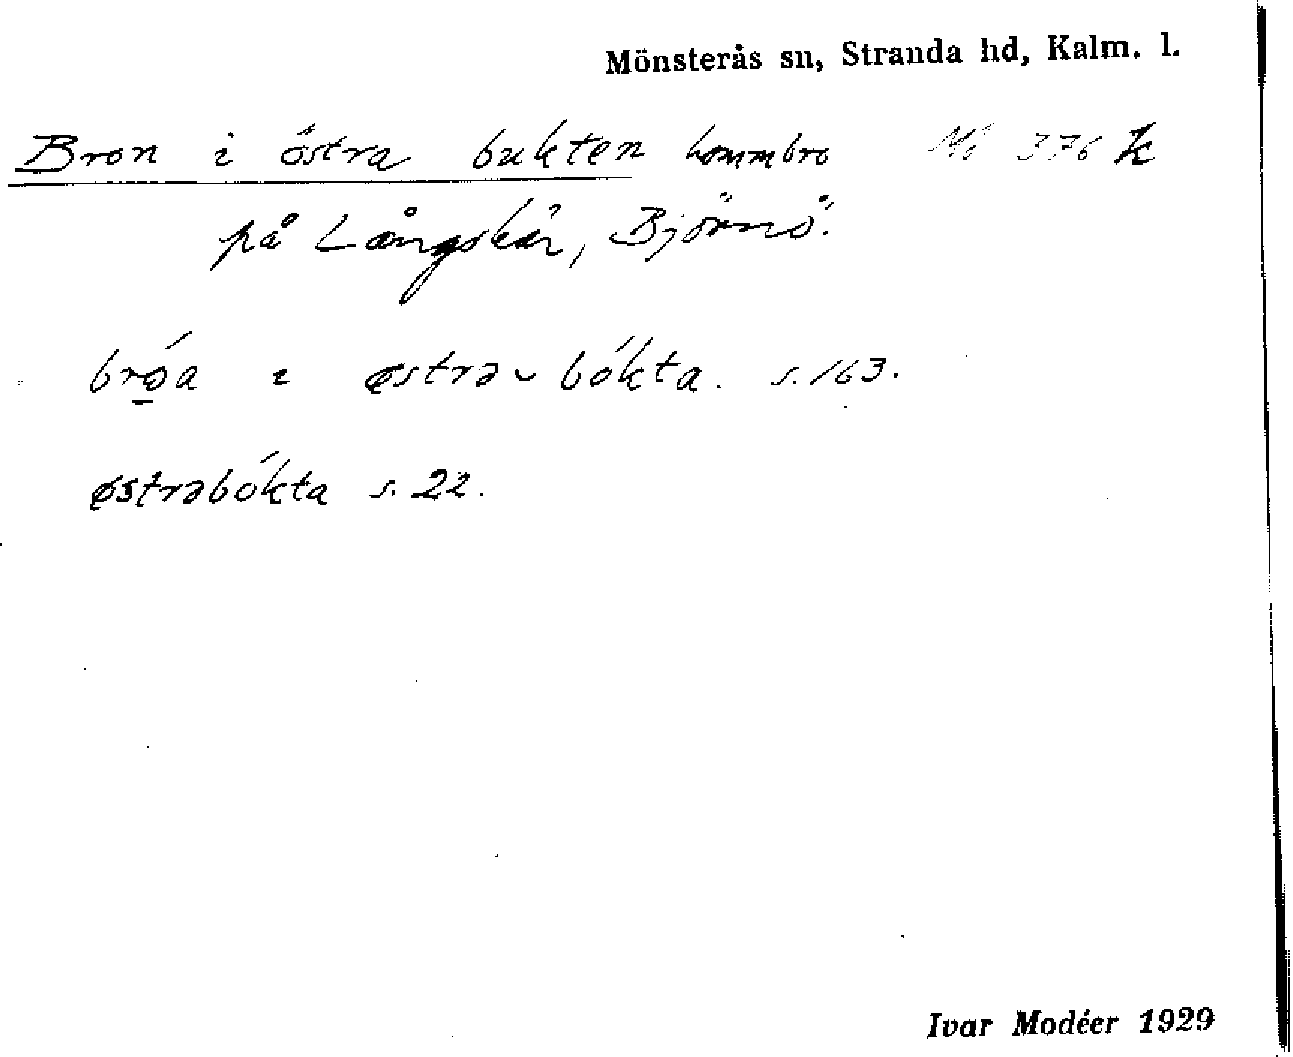 Mönsterås sn, Stranda hd, Kalm. l.
Bron i östra bukten hommbro Mö 376 k
på Långskär, Björnö.
bró̲a i østrə ⌣ bókta. s. 163.
østrəbókta s. 22.
Ivar Modéer 1929